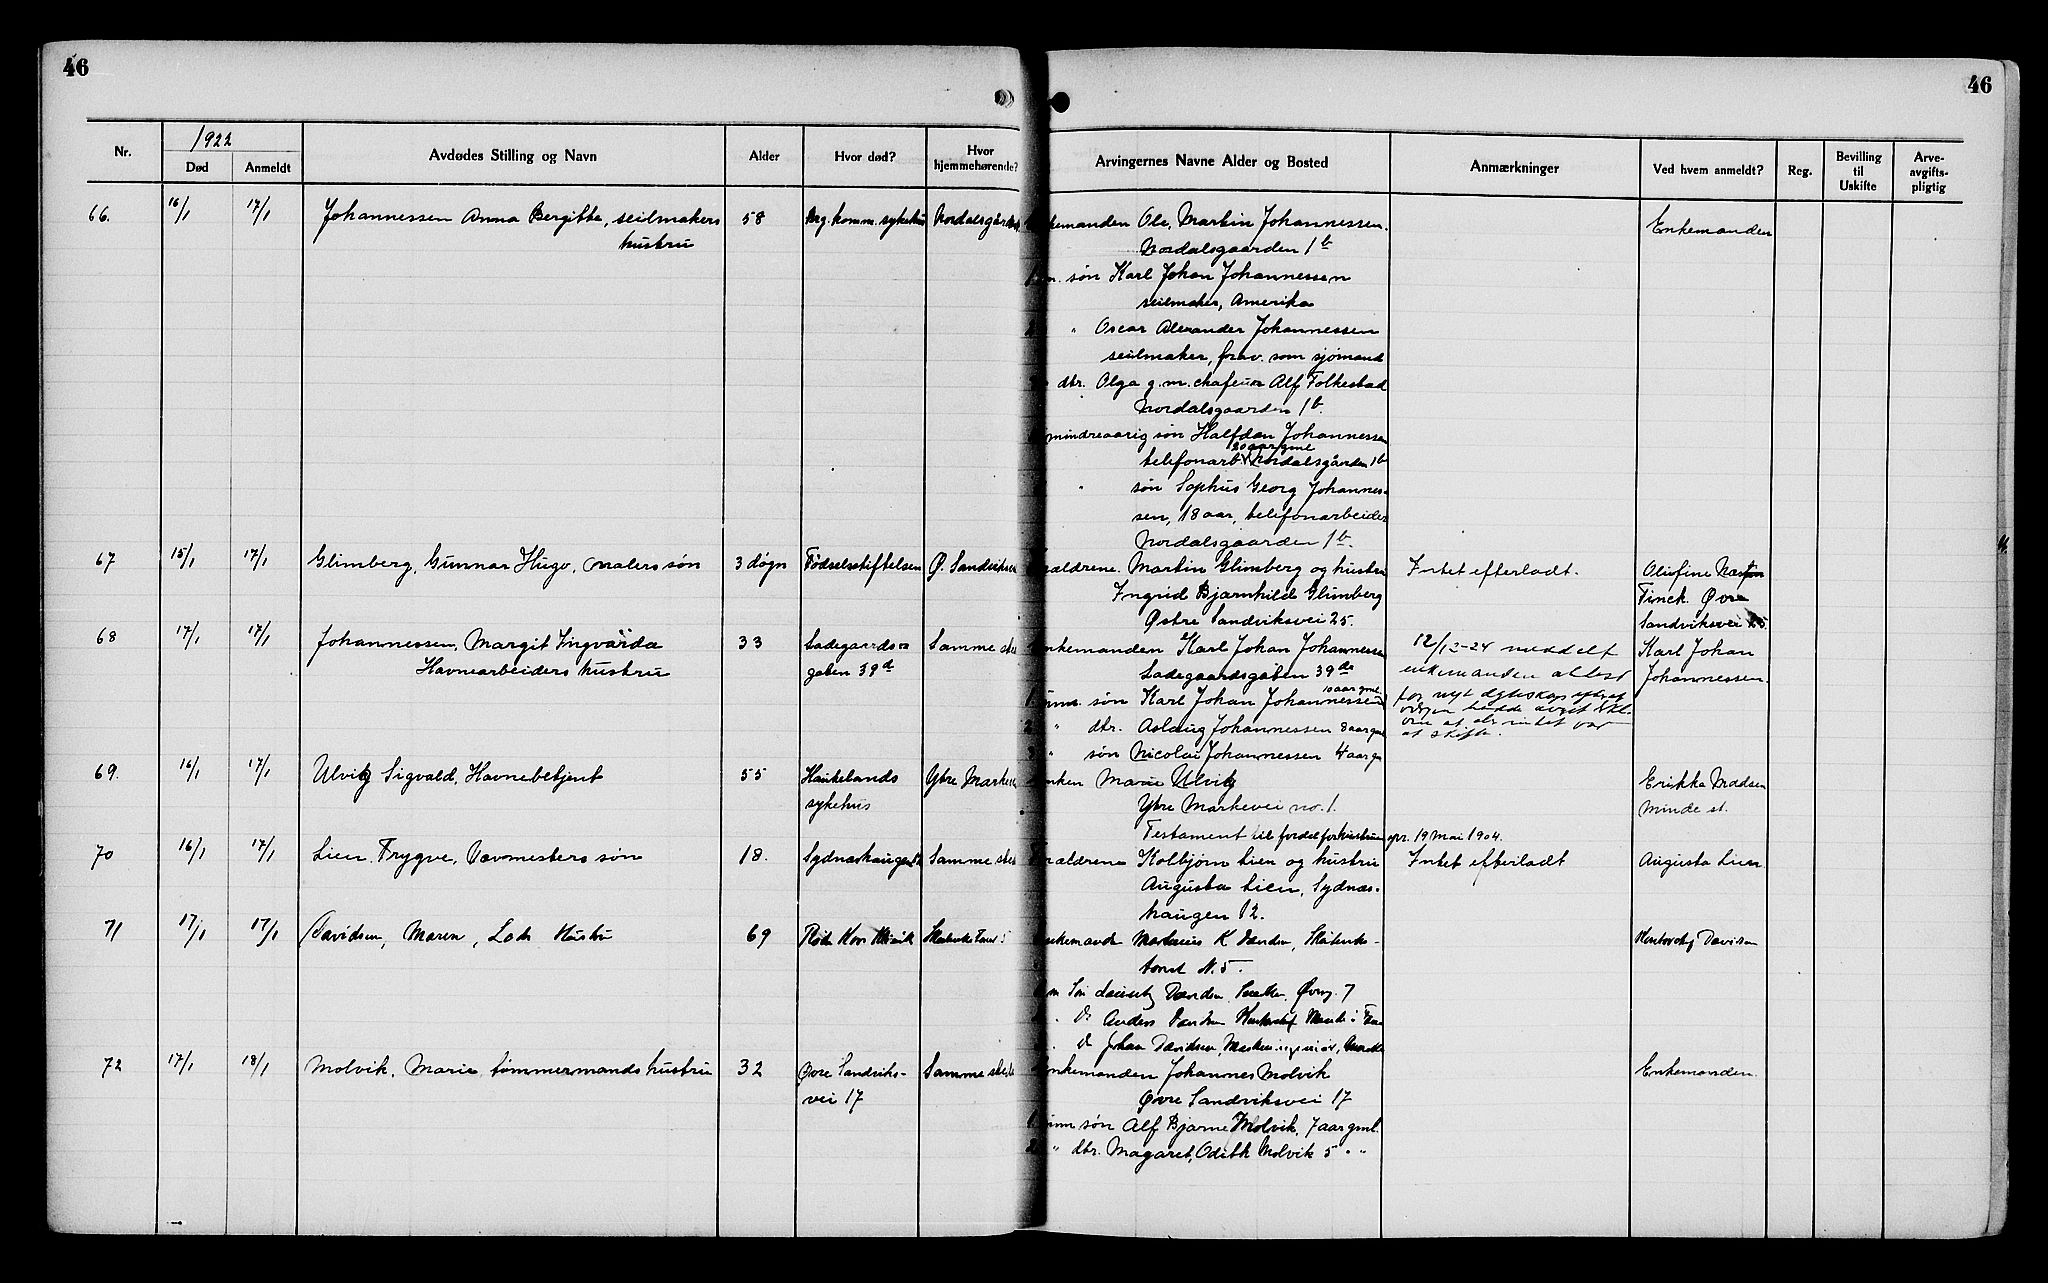 46
46
1922
Nr.
Død
Anmeldt
Avdødes Stilling og Navn
Alder
Hvor død?
Hvor hjemmehørende?
Arvingernes Navne Alder og Bosted
Anmærkninger
Ved hvem anmeldt?
Reg.
Bevilling til Uskifte
Arve-avgifts-pligtig
66. 16/1 17/1 Johannessen Anna Bergitte, seilmakers 58 komm. sykehus Nordalsgården
hustru
Enkemanden Ole, Martin Johannessen. Enkemanden
Nordalsgaarden 1b
søn Karl Johan Johannessen
seilmaker, Amerika
" Oscar Alexander Johannessen
seilmaker, frav. som sjømand
dtr. Olga g.m. chafeur Alf Folkestad
Nordalsgaarden 1b.
mindreaarig søn Halfdan Johannessen
20 aar gml
telefonarb. Nordalsgården 1b
" søn Sophus Georg Johannes-
sen, 18 aar, telefonarbeider
Nordalsgaarden 1b.
67 15/1 17/1 Glimberg, Gunnar Hugo, malers søn 3 døgn Fødselsstiftelsen Ø. Sandviksvei
Forældrene Martin Glimberg og hustru Intet efterladt. Oliefine
Ingrid Bjarnhilde Glimberg Finck. Øvre
Østre Sandviksvei 25. Sandviksvei
68 17/1 17/1 Johannessen, Margit Ingvarda 33 Ladegaards- Samme sted
Havnearbeiders hustru gaten 39d
Enkemanden Karl Johan Johannessen 12/12-24 meddelt Karl Johan
Ladegaardsgaten 39d enkemanden attest Johannessen.
10 aar gml.
1. søn Karl Johan Johannessen for nyt egteskap efterat
2 " dtr. Aslaug Johannessen 8 aar gml. hadde avgit
3 " søn Nicolai Johannessen 4 aar g. at skifte.
69. 16/1 17/1 Ulvik Sigvald, Havnebetjent 55 Haukelands Ytre Markevei
sykehus
Enken Marie Ulvik Erikka Madsen
Ytre Markevei no. 1. Minde st.
Testament til fordel for hustruen opr. 19 mai 1904.
70 16/1 17/1 Lien. Trygve, Vævmesters søn 18. Sydnæshaugen 12 Samme sted
Forældrene Kolbjørn Lien og hustru Intet efterladt Augusta Lien
Augusta Lien, Sydnæs-
haugen 12.
71 17/1 17/1 Davidsen, Maren, Lods Hustru 69 Røde Kors Klinik 5
Enkemanden K. Davidsen, Davidsen
N. 5.
Søn Davidsen, 7
Do Anders Davidsen
Do Johan Davidsen, Maskeningeniør,
72 17/1 18/1 Molvik, Marie tømmermands hustru 32 Øvre Sandviks- Samme sted
vei 17
Enkemanden Johannes Molvik Enkemanden.
Øvre Sandviksvei 17
søn Alf Bjarne Molvik, 7 aar gml.
" dtr. Magaret, Odith Molvik 5 " "